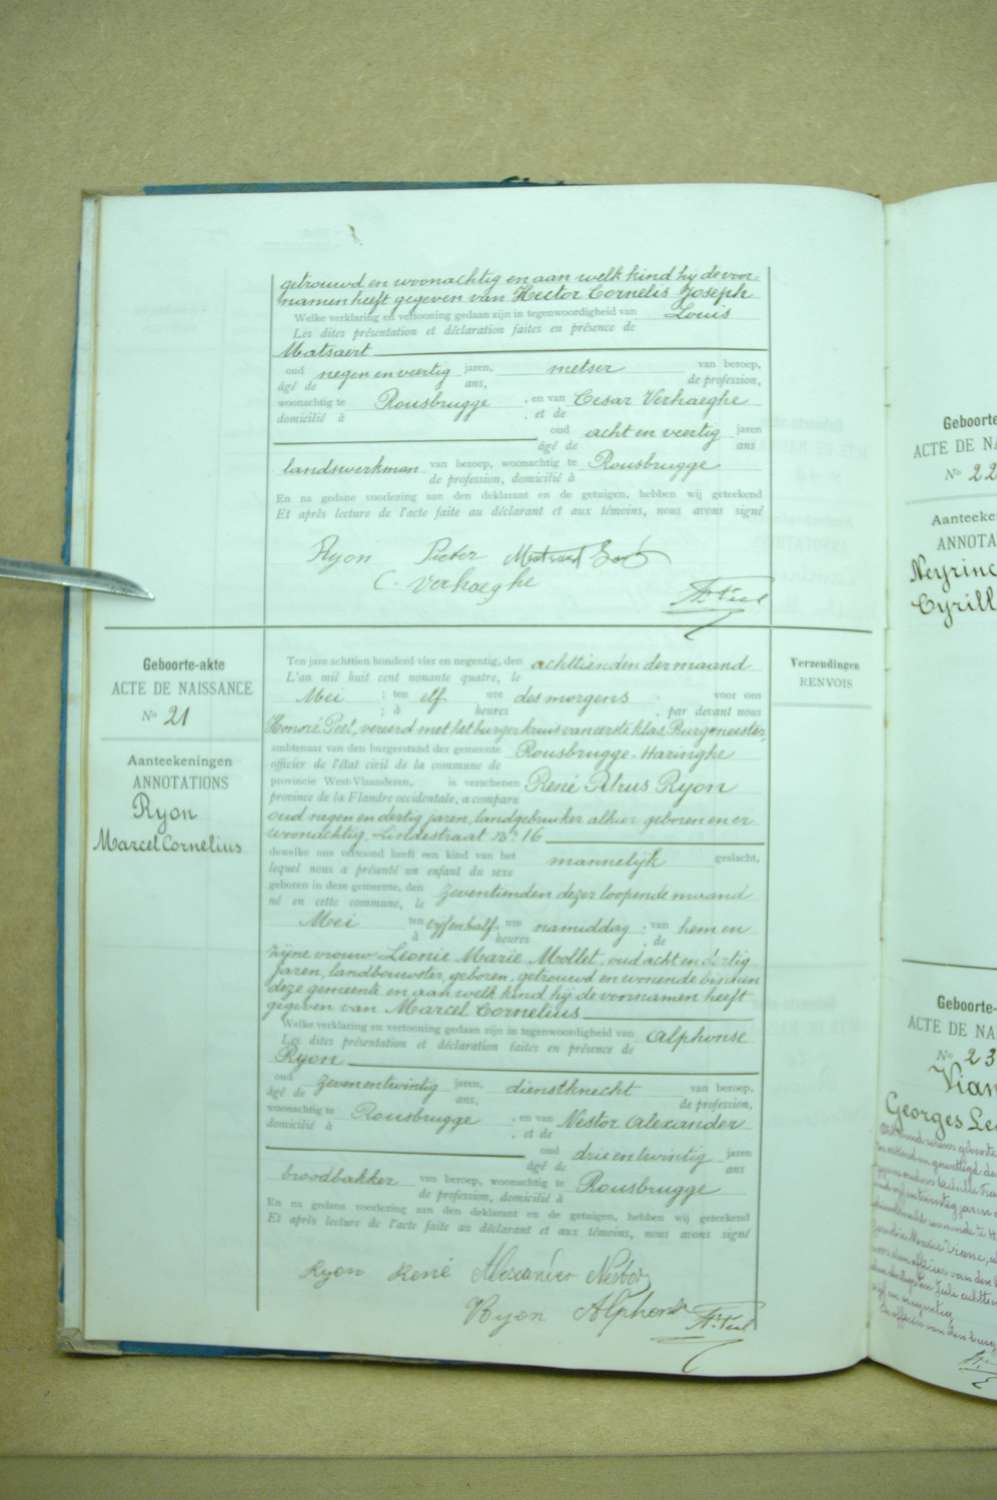 getrouwd en woonachtig en aan welk kind hy de voor-
namen heeft gegeven van Hector Cornelis Joseph
Welke verklaring en vertooning gedaan zijn in tegenwoordigheid van Louis
Les dites présentation et déclaration faites en présence de
Matsaert
oud negen en veertig jaren, metser van beroep,
âgé de ans, de profession,
woonachtig te Rousbrugge , en van Cesar Verhaeghe
domicilié à , et de
oud acht en veertig jaren
âgé de ans
landswerkman van beroep, woonachtig te Rousbrugge
de profession, domicilié à
En na gedane voorlezing aan den deklarant en de getuigen, hebben wij geteekend
Et après lecture de l'acte faite au déclarant et aux témoins, nous avons signé
Ryon Pieter
C. Verhaeghe
Geboorte-akte
ACTE DE NAISSANCE
No 21
Aanteekeningen
ANNOTATIONS
Ryon
Marcel Cornelius
Ten jare achttien honderd vier en negentig, den achttienden der maand
L'an mil huit cent nonante quatre, le
Mei ; ten elf ure des morgens , voor ons
; à heures , par devant nous
Honoré Peel, vereerd met het burgerkruis van eerste klas, Burgemeester,
ambtenaar van den burgerstand der gemeente Rousbrugge-Haringhe
officier de l'état civil de la commune de
provincie West-Vlaanderen, is verschenen René Petrus Ryon
province de la Flandre occidentale, a comparu
oud negen en dertig jaren, landgebruiker alhier geboren en er
woonachtig, Lindestraat No 16
dewelke ons vertoond heeft een kind van het mannelijk geslacht,
lequel nous a présenté un enfant du sexe
geboren in deze gemeente, den zeventienden dezer loopende maand
né en cette commune, le
Mei ten vyfenhalf ure namiddag , van hem en
à heures , de
zijne vrouw Leonie Marie Mollet, oud acht en dertig
jaren, landbouwster, geboren, getrouwd en wonende binnen
deze gemeente en aan welk kind hij de voornamen heeft
gegeven van Marcel Cornelius
Welke verklaring en vertooning gedaan zijn in tegenwoordigheid van Alphonse
Les dites présentation et déclaration faites en présence de
Ryon
oud zevenentwintig jaren, dienstknecht van beroep,
âgé de ans, de profession,
woonachtig te Rousbrugge , en van Nestor Alexander
domicilié à , et de
oud drie en twintig jaren
âgé de ans
broodbakker van beroep, woonachtig te Rousbrugge
de profession, domicilié à
En na gedane voorlezing aan den deklarant en de getuigen, hebben wij geteekend
Et après lecture de l'acte faite au déclarant et aux témoins, nous avons signé
Ryon René Alexander Nestor
Ryon Alphonse Hre Peel
Verzendingen
RENVOIS
Geboorte-
ACTE DE NA
No 22
Aanteeke
ANNOTA
Neyrinc
Cyrill
Geboorte-
ACTE DE NA
No 23
Vian
Georges Le